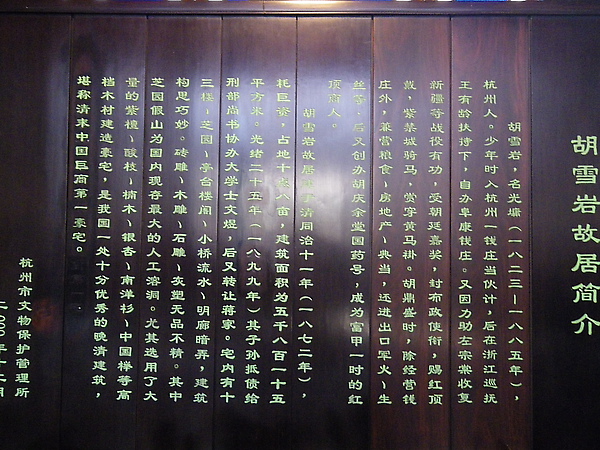 胡雪岩故居简介
胡雪岩，名光墉（一八二三—一八八五年），
杭州人。少年时入杭州一钱庄当伙计，后在浙江巡抚
王有龄扶持下，自办阜康钱庄。又因力助左宗棠收复
新疆等战役有功，受朝廷嘉奖，封布政使衔，赐红顶
戴，紫禁城骑马，赏穿黄马褂。胡鼎盛时，除经营钱
庄外，兼营粮食、房地产、典当，还进出口军火、生
丝等，后又创办胡庆余堂国药号，成为富甲一时的红
顶商人。
胡雪岩故居建于清同治十一年（一八七二年），
耗巨资，占地十 八亩，建筑面积为五千八百一十五
平方米。光绪二十五年（一八九九年）其子孙抵债给
刑部尚书协办大学士文煜，后又转让蒋家。宅内有十
三楼、芝园、亭台楼阁、小桥流水、明廊暗弄，建筑
构思巧妙。砖雕、木雕、石雕、灰塑无品不精。其中
芝园假山为国内现存最大的人工溶洞。尤其选用了大
量的紫檀、酸枝、楠木、银杏、南洋杉、中国榉等高
档木材建造豪宅，是我国一处十分优秀的晚清建筑，
堪称清末中国巨商第一豪宅。
杭州市文物保护管理所
二